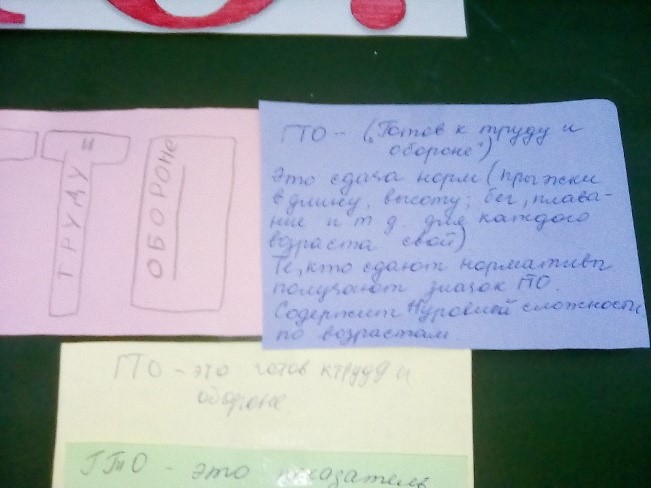 ГТО!
ТРУДУ И
ОБОРОНЕ
ГТО – („Готов к труду и
обороне")
Это сдача норм (прыжки
в длину, высоту; бег, плава-
ние и т д. для каждого
возраста свой)
Те, кто сдают нормативы
получают значок ГТО.
Содержит 11 уровней сложности
по возрастам
ГТО – это готов к труду и
обороне
ГТиО – это показатель